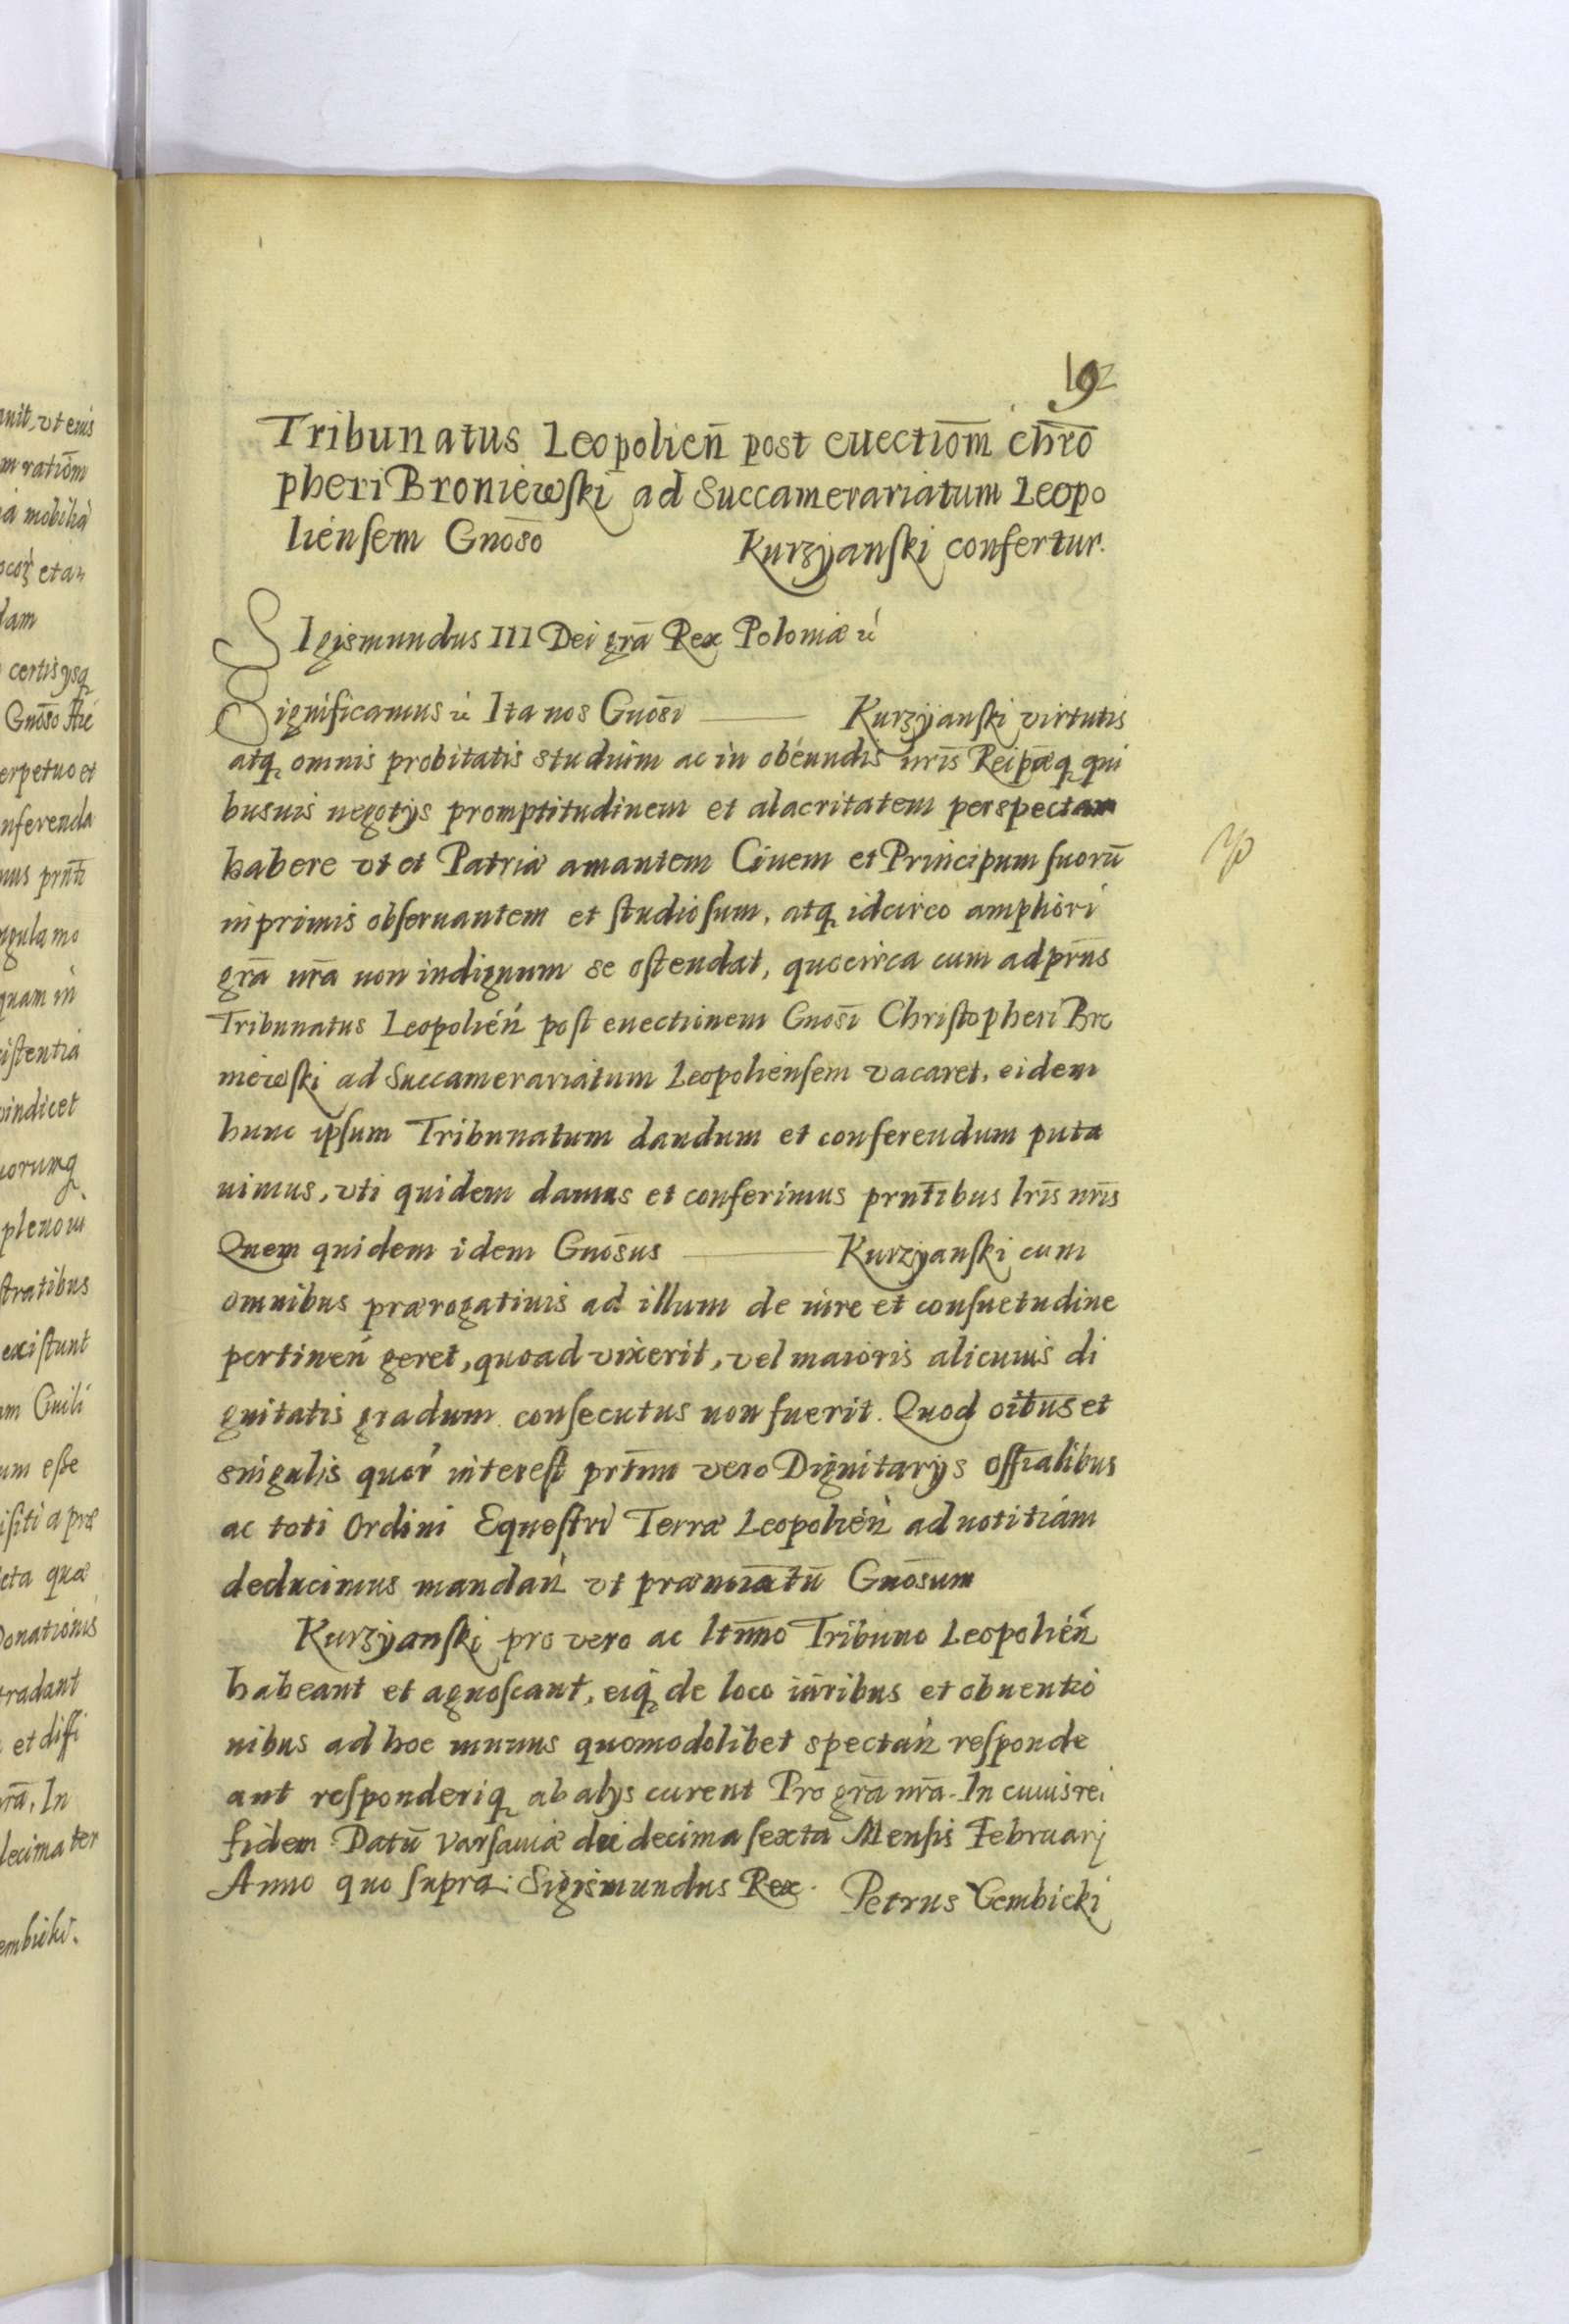 192
Tribunatus Leopolien̄ post euectiōm chrō
pheri Broniewski ad Succamerariatum Leopo
liensem Gnoso Kurzÿanski confertur.
SIgismundus III Dei grā Rex Poloniæ
Significamus Ita nos Gnosi — Kurzÿanski virtutis
atq omnis probitatis studium ac in obeundis nris Reipæq qui
busuis negotys promptitudinem et alacritatem perspectam
habere vt et Patriæ amantem Ciuem et Principum suorū
inprimis obseruantem et studiosum, atq idcirco ampliori
grā nrā non indignum se ostendat, quocirca cum ad prn̄s
Tribunatus Leopolień post euectionem Gnosi Christopheri Bro
niewski ad Succamerariatum Leopoliensem vacaret, eidem
hunc ipsum Tribunatum dandum et conferendum puta
uimus, vti quidem damus et conferimus prntibus lris nris
Quem quidem idem Gnosus — Kurzÿanski cum
omnibus prærogatiuis ad illum de iure et consuetudine
pertineń geret, quoad vixerit, vel maioris alicuius di
gnitatis gradum consecutus non fuerit. Quod oibus et
singulis quor interest prtim vero Dignitarys offialibus
ac toti Ordini Equestri Terræ Leopolień ad notitiam
deducimus mandań vt prænoiatū Gnosum
Kurzÿanski pro vero ac ltimo Tribuno Leopolień
habeant et agnoscant, eiq de loco iuribus et obuentio
nibus ad hoc munus quomodolibet spectań responde
ant responderiq ab alys curent Pro grā nrā. In cuius rei
fidem Datū Varsauiæ die decima sexta Mensis Februarj
Anno quo supra. Sigismundus Rex. Petrus Gembicki